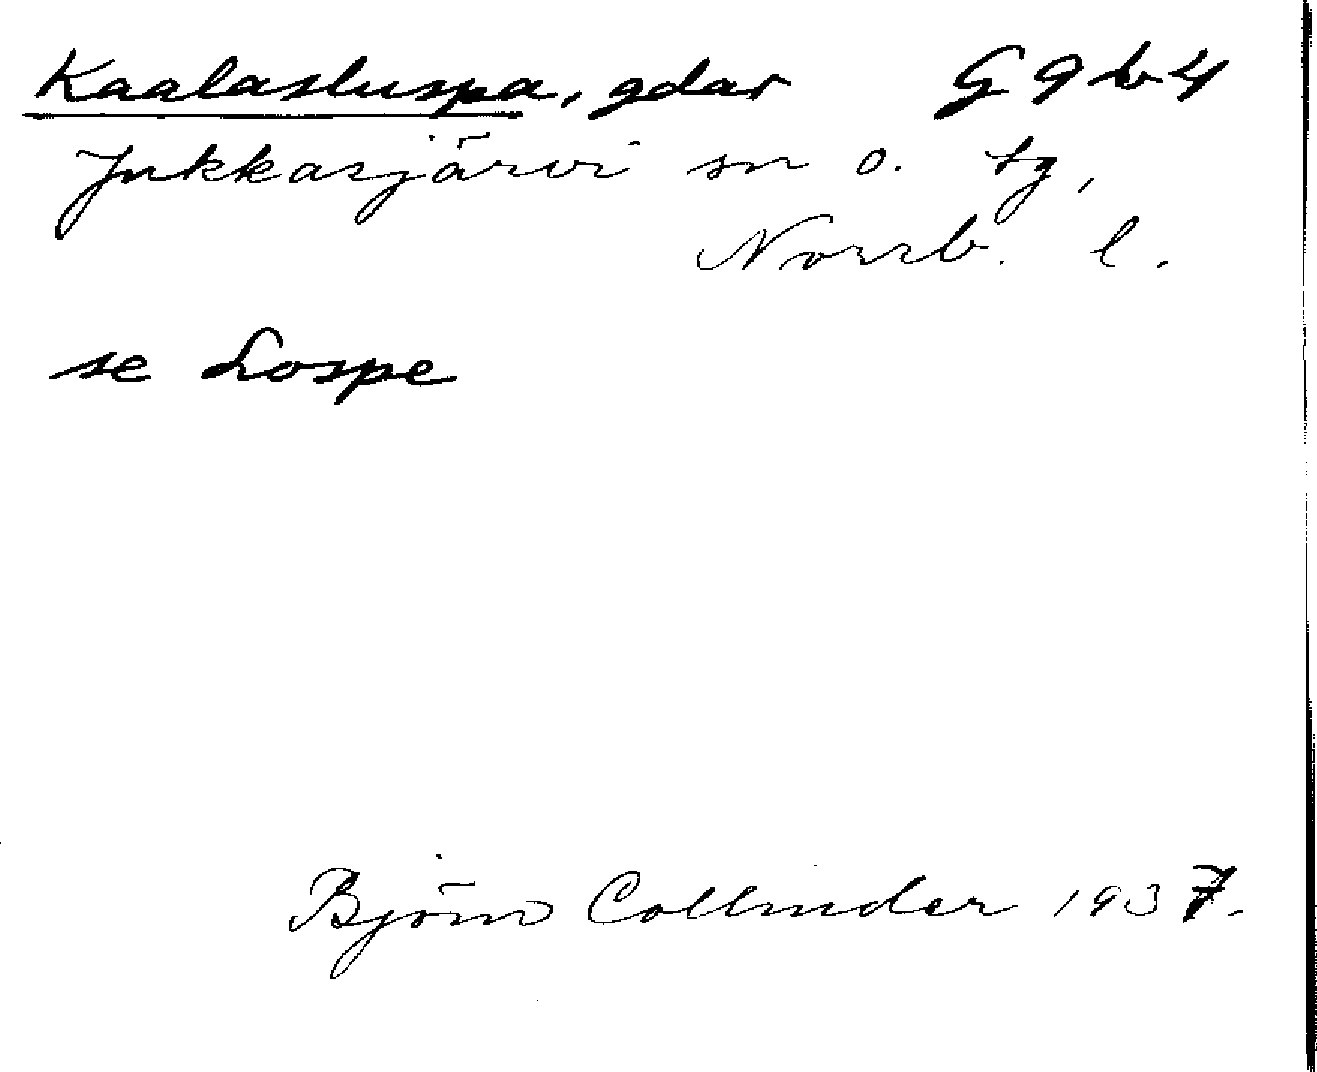 Kaalasluspa, gdar G 9 b 4
Jukkasjärvi sn o. tg,
Norrb. l.
se Lospe
Björn Collinder 1937.